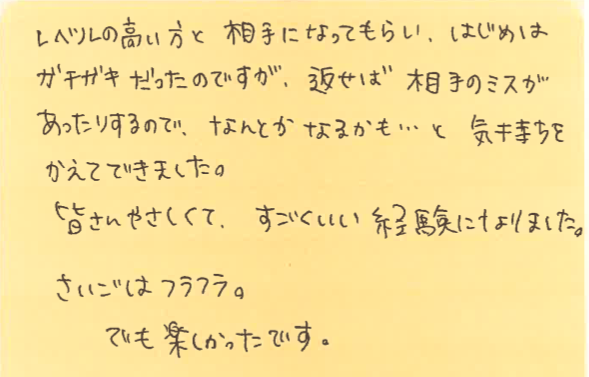 レベルの高い方と相手になってもらい、はじめは
ガチガチだったのですが、返せば相手のミスが
あったりするので、なんとかなるかも…と気持ちを
かえてできました。
皆さんやさしくて、すごくいい経験になりました。
さいごはフラフラ。
でも楽しかったです。